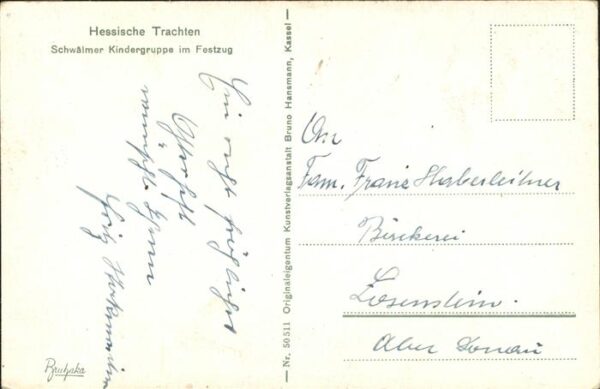 Hessische Trachten
Schwälmer Kindergruppe im Festzug
Ein recht fröhliches
Osterfest
wünscht Ihnen
Fritz
— Nr. 50511 Originaleigentum Kunstverlagsanstalt Bruno Hansmann, Kassel —
An
Fam. Franz Haberleitner
Bäckerei
Losenstein.
Ober Donau